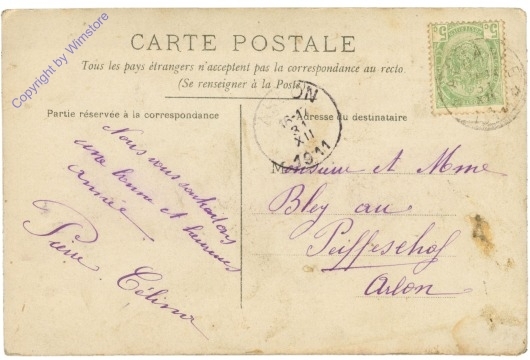 Copyright by Wimstore
CARTE POSTALE
Tous les pays étrangers n'acceptent pas la correspondance au recto
(Se renseigner à la Poste)
Partie réservée à la correspondance
Adresse du destinataire
Nous vous souhaitons
une bonne et heureuse
année.
Pierre Célina
ARLON
16-17
31
XII
1911
M
Monsieur et Mme
Bley au
Peiffeschof
Arlon
5 5